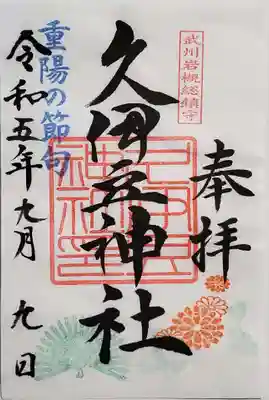 奉拝
武州岩槻総鎮守
久伊豆神社
重陽の節句
令和五年九月九日